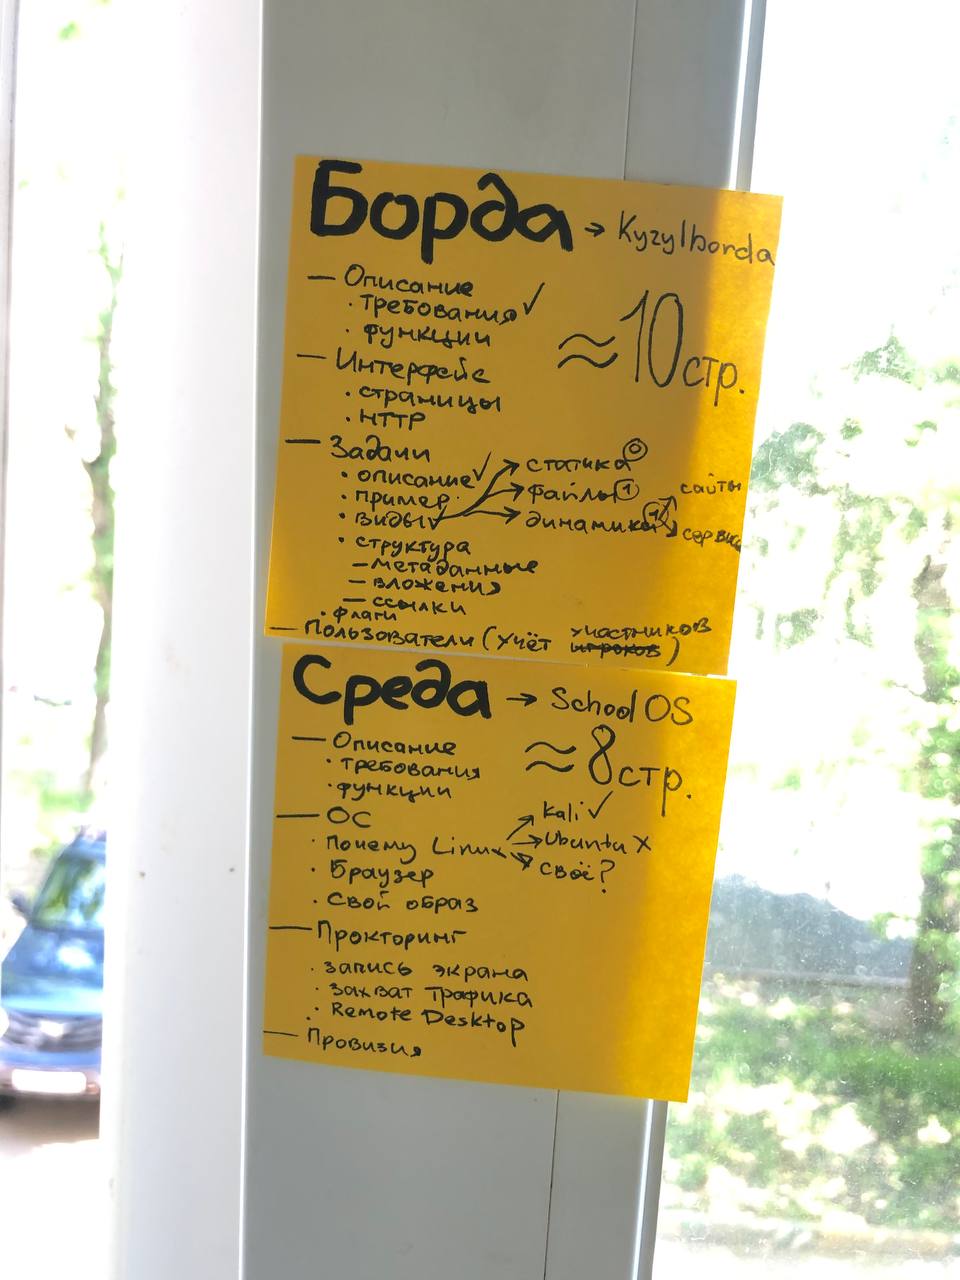 Борда → Kyzylborda
— Описание
· требования ✓
· функции
≈ 10 стр.
— Интерфейс
· страницы
· HTTP
— Задачи
· описание ✓
· пример
· виды ✓
→ статика 0
→ файлы 1
→ динамика 1
сайты
сервисы
· структура
— метаданные
— вложения
— ссылки
· флаги
— Пользователи (учёт участников игроков)
Среда → School OS
— Описание
· требования
· функции
≈ 8 стр.
— ОС
· Почему Linux
→ Kali ✓
→ Ubuntu X
→ своё?
· Браузер
· Свой образ
— Прокторинг
· запись экрана
· захват трафика
· Remote Desktop
— Провизия